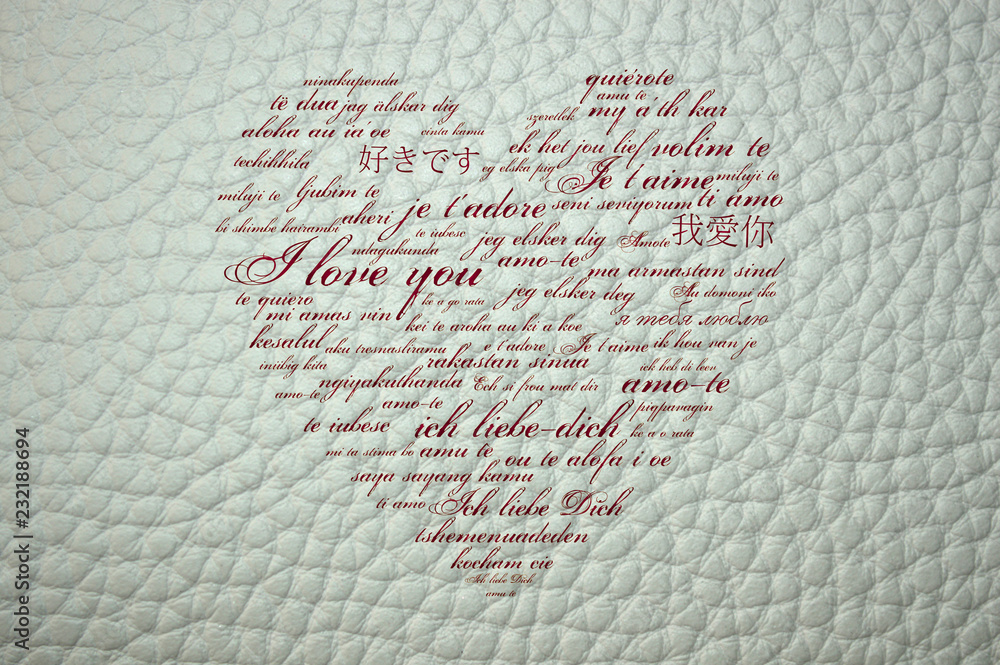 ninakupenda
quiérote
të dua jag älskar dig
amu te
aloha au iá oe
cinta kamu
szeretlek
my a'th kar
techihhila
好きです
eg elska pig
ek het jou lief
volim te
miluji te
ljubim te
Je t'aime
miluji te
bi shimbe hairambi
aheri
je t'adore
seni seviyorum
ti amo
te iubesc
jeg elsker dig
Amote
我愛你
ndagukunda
I love you
amo-te
ma armastan sind
te quiero
ke a go rata
jeg elsker deg
Aa domoni iko
mi amas vin
kei te aroha au ki a koe
я тебя люблю
kesalul
aku tresnasliramu
e t'adore
Je t'aime
ik hou van je
iniibig kita
rakastan sinua
ick heb di leen
amo-te
ngiyakuthanda
Ech si frou mat dir
amo-te
amo-te
pigpavagin
te iubesc
ich liebe-dich
ke a o rata
mi ta stima bo
amu te
ou te alofa i oe
saya sayang kamu
ti amo
Ich liebe Dich
tshemenuadeden
kocham cie
Ich liebe Dich
amu te
Adobe Stock | #232188694